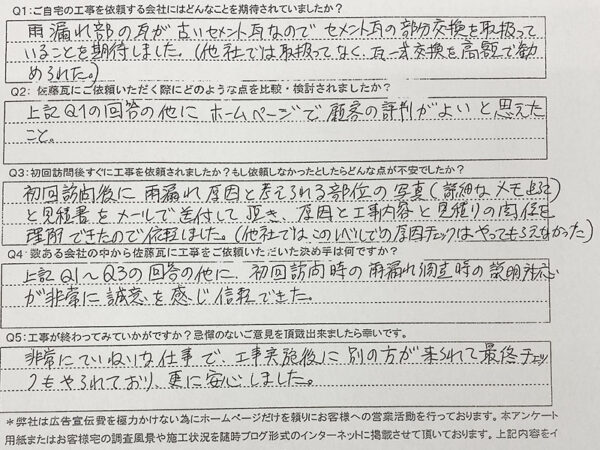 Q1:ご自宅の工事を依頼する会社にはどんなことを期待されていましたか?
雨漏れ部の瓦が古いセメント瓦なので セメント瓦の部分交換を取扱って
いることを期待しました。(他社では取扱ってなく、瓦一式交換を高額で勧
められた。)
Q2: 佐藤瓦にご依頼いただく際にどのような点を比較・検討されましたか?
上記Q1の回答の他に ホームページで 顧客の評判がよいと思えた
こと。
Q3:初回訪問後すぐに工事を依頼されましたか?もし依頼しなかったとしたらどんな点が不安でしたか?
初回訪問後に 雨漏れ原因と考えられる部位の写真(詳細なメモ
と見積書をメールで送付して頂き、原因と工事内容と見積りの関係を
理解できたので依頼しました。(他社では、このレベルでの原因チェックはやってもらえなかった)
Q4: 数ある会社の中から佐藤瓦に工事をご依頼いただいた決め手は何ですか?
上記Q1〜Q3の回答の他に、初回訪問時の雨漏れ調査時の説明対応
が非常に誠意を感じ信頼できた。
Q5:工事が終わってみていかがですか?忌憚のないご意見を頂戴出来ましたら幸いです。
非常にていねいな仕事で、工事実施後に別の方が来られて最終チェッ
クもやられており、更に安心しました。
＊弊社は広告宣伝費を極力かけない為にホームページだけを頼りにお客様への営業活動を行っております。本アンケート
用紙またはお客様宅の調査風景や施工状況を随時ブログ形式のインターネットに掲載させて頂いております。上記内容をイ